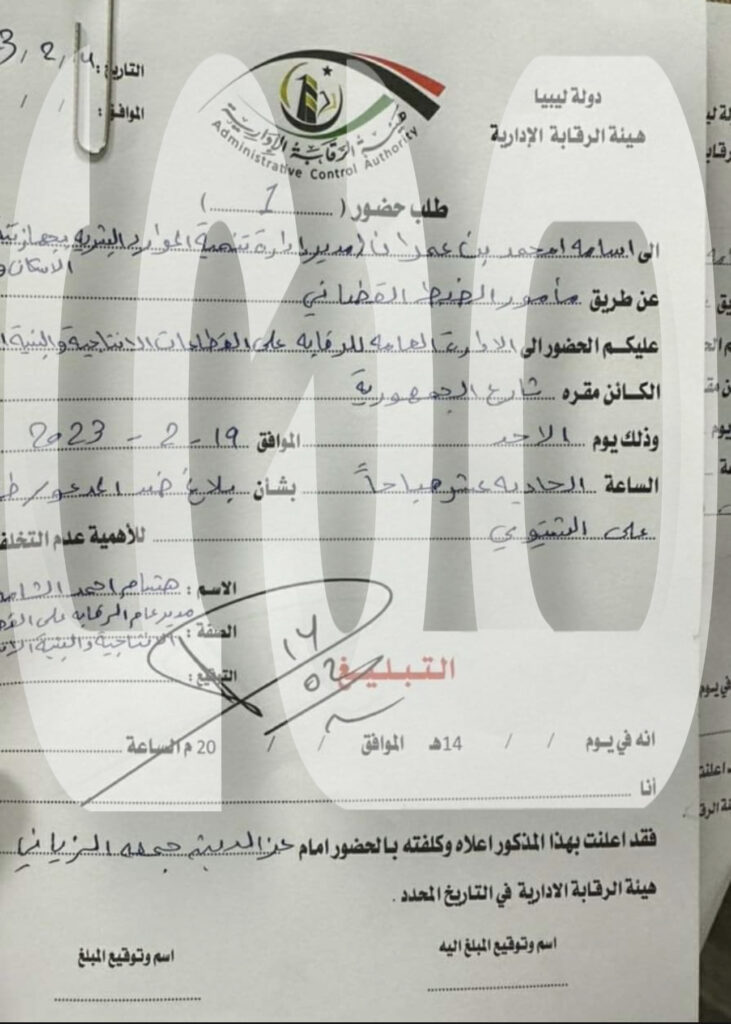 دولة ليبيا
هيئة الرقابة الإدارية
هيئة الرقابة الإدارية
Administrative Control Authority
التاريخ:
الموافق: / /
طلب حضور ( 1 )
الى اسامه امحمد بن عمران (مدير ادارة تنمية الموارد البشريه بجهاز
الاسكان و
عن طريق مأمور الضبط القضائي
عليكم الحضور الى الادارة العامه للرقابه على القطاعات الانتاجية والبنية
الكائن مقره شارع الجمهورية
وذلك يوم الاحد الموافق 19 - 2 - 2023
الساعة الحاديه عشر صباحاً بشأن بلاغ ضد المدعو /
على الشتيوي
للأهمية عدم التخلف
الاسم : هشام احمد
الصفة : مدير عام الرقابه على
الانتاجية والبنية
التوقيع :
14
02
التبليغ
انه في يوم / / 14هـ الموافق / / 20 م الساعة
أنا
فقد اعلنت بهذا المذكور اعلاه وكلفته بالحضور امام عز الدين جمعه الزياني
هيئة الرقابة الادارية في التاريخ المحدد .
اسم وتوقيع المبلغ اليه
اسم وتوقيع المبلغ